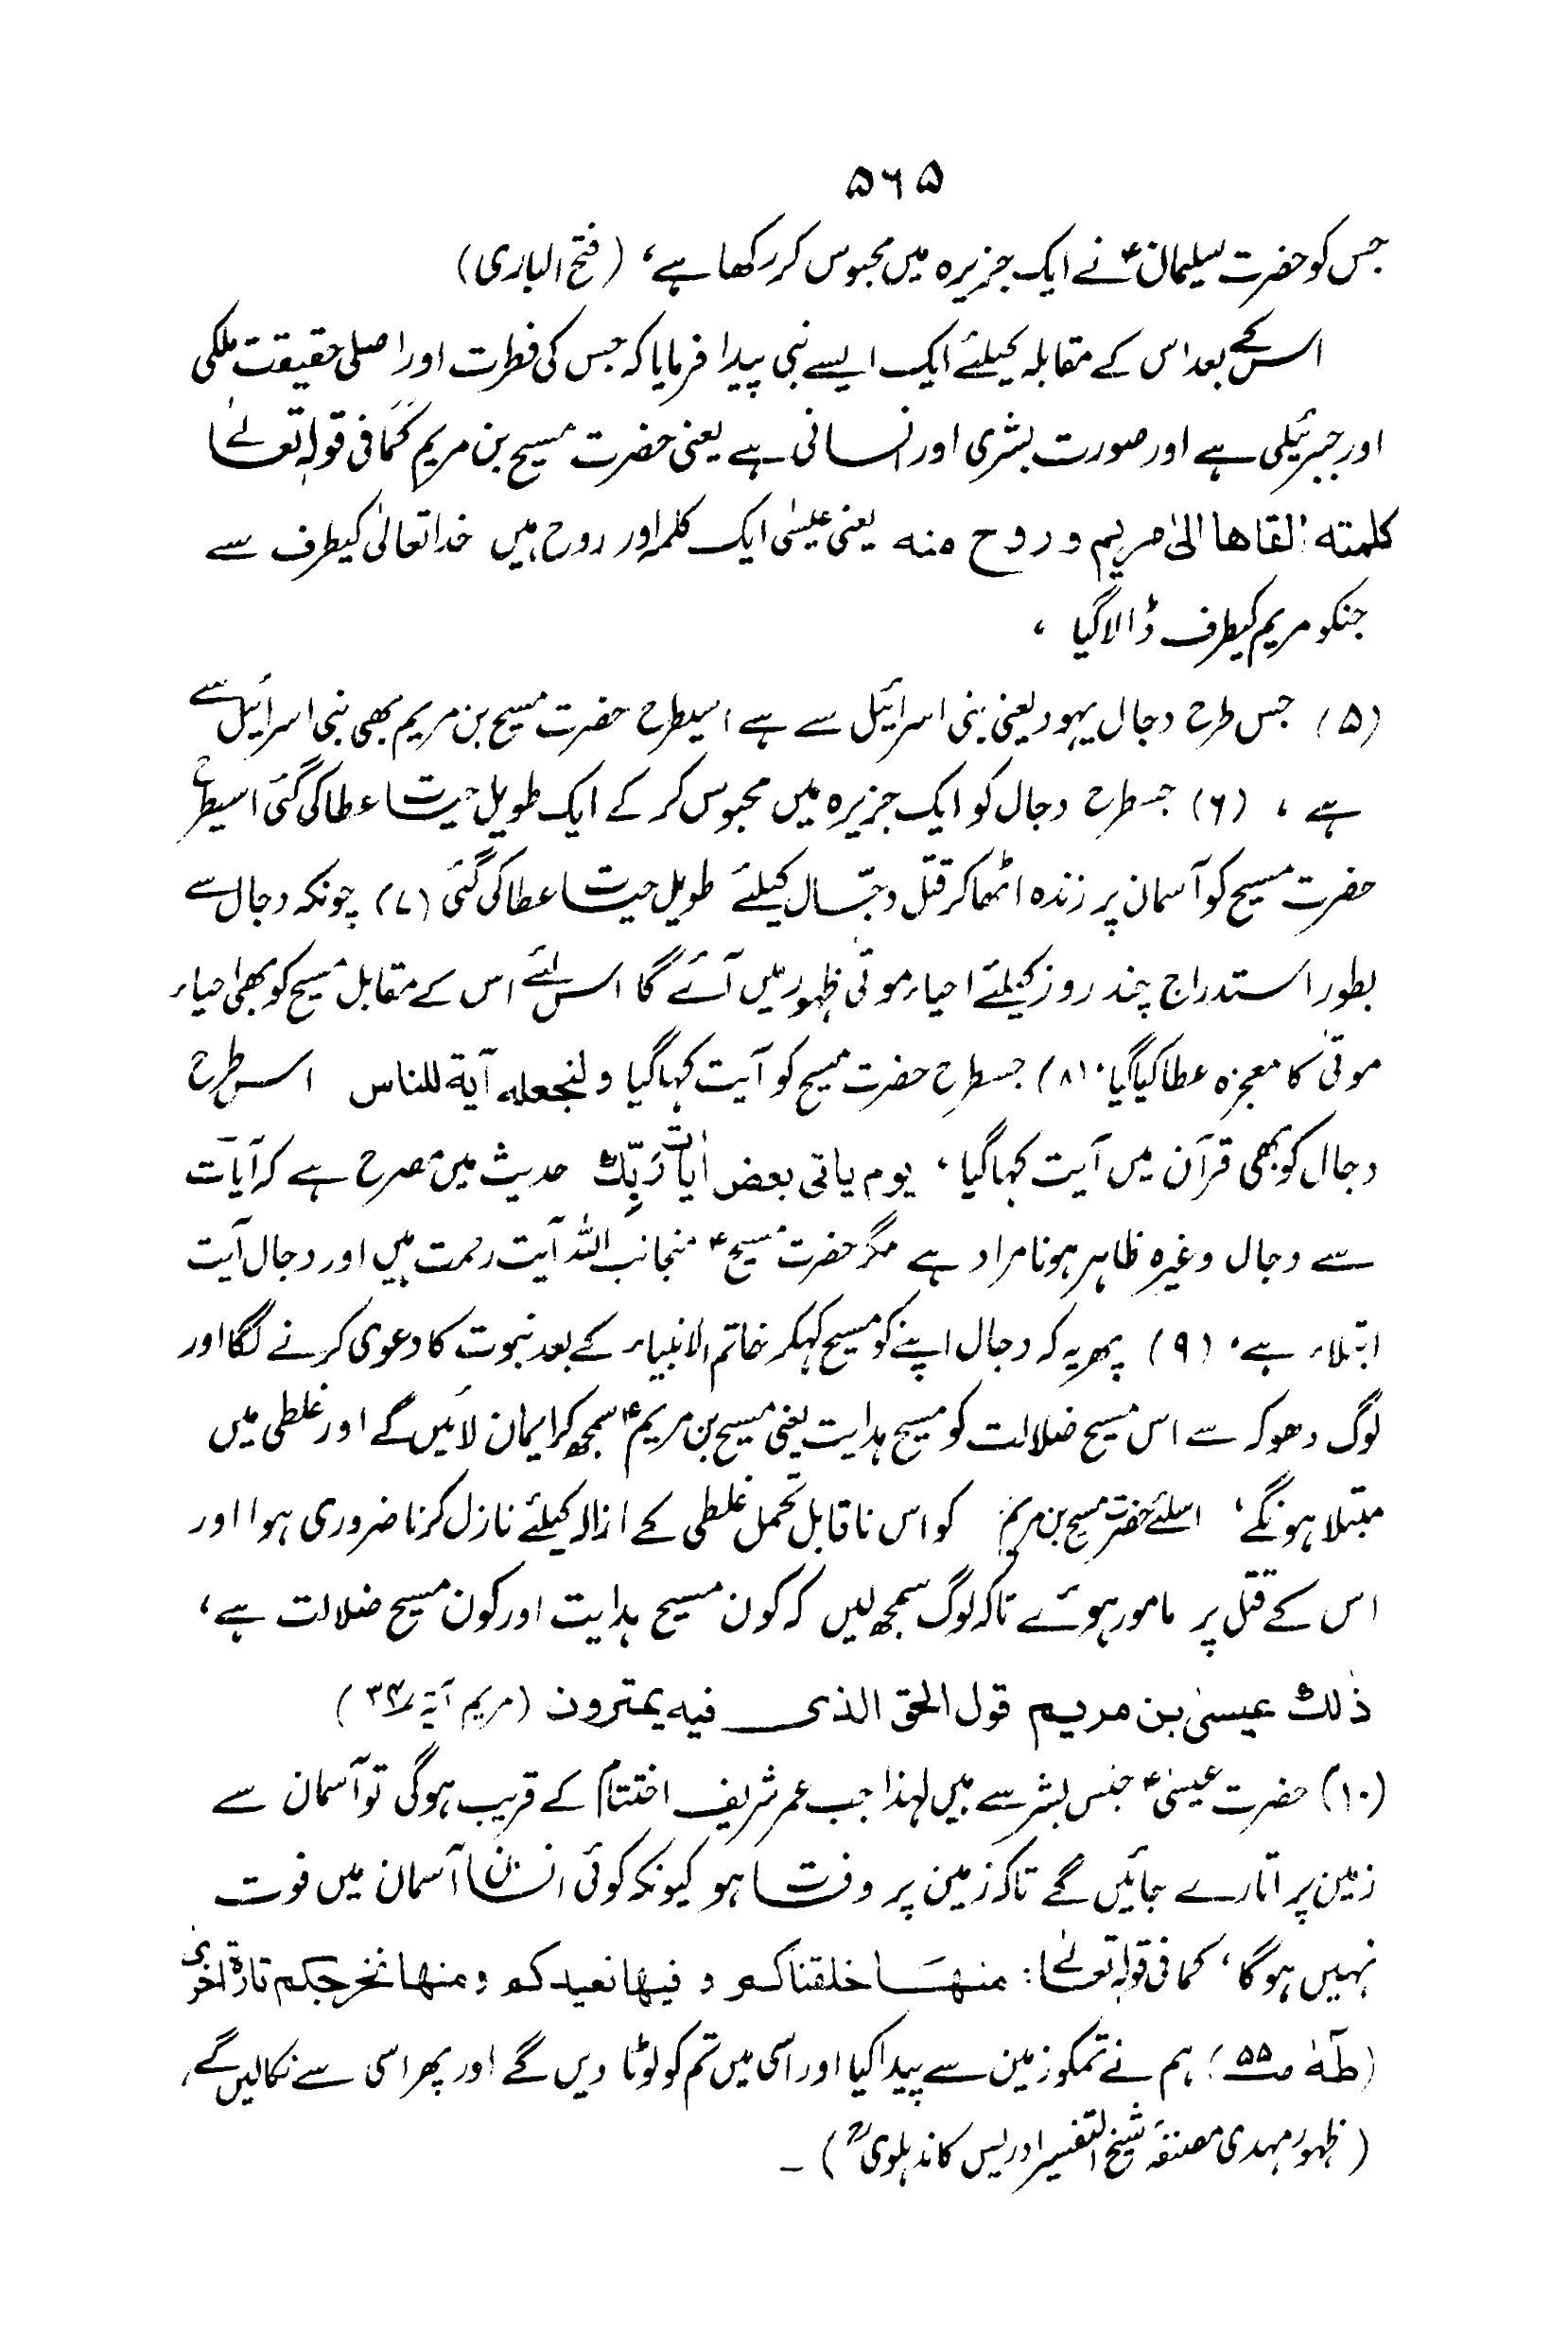 ۵۶۵
جس کو حضرت سلیمانؑ نے ایک جزیرہ میں محبوس کر رکھا ہے، (فتح الباری)
اسکے بعد اس کے مقابلہ کیلئے ایک ایسے نبی پیدا فرمایا کہ جس کی فطرت اور اصلی حقیقت ملکی
اور جبرئیلی ہے اور صورت بشری اور انسانی ہے یعنی حضرت مسیح بن مریم کما فی قولہٖ تعالےٰ
کلمته القاها الیٰ مریم و روح منه یعنی عیسٰی ایک کلمہ اور روح ہیں خدا تعالیٰ کیطرف سے
جنکو مریم کیطرف ڈالا گیا ،
(۵) جس طرح دجال یہود یعنی بنی اسرائیل سے ہے اسیطرح حضرت مسیح بن مریم بھی بنی اسرائیل سے
ہے ، (۶) جسطرح دجال کو ایک جزیرہ میں محبوس کر کے ایک طویل حیات عطا کی گئی اسیطرح
حضرت مسیح کو آسمان پر زندہ اٹھا کر قتل دجّال کیلئے طویل حیات عطا کی گئی (۷) چونکہ دجال سے
بطور استدراج چند روز کیلئے احیاء موتٰی ظہور میں آئے گا اس لئے اس کے مقابل مسیح کو بھی احیاء
موتٰی کا معجزہ عطا کیا گیا، (۸) جسطرح حضرت مسیح کو آیت کہا گیا ولنجعله آیة للناس اس طرح
دجال کو بھی قرآن میں آیت کہا گیا ، یوم یاتی بعض اٰیات رَبِّكَ حدیث میں مصرح ہے کہ آیات
سے دجال وغیرہ ظاہر ہونا مراد ہے مگر حضرت مسیحؑ منجانب اللہ آیت رحمت ہیں اور دجال آیت
ابتلاء ہے، (۹) پھر یہ کہ دجال اپنے کو مسیح کہکر خاتم الانبیاء کے بعد نبوت کا دعوی کرنے لگا اور
لوگ دھوکہ سے اس مسیح ضلالت کو مسیح ہدایت یعنی مسیح بن مریمؑ سمجھ کر ایمان لائیں گے اور غلطی میں
مبتلا ہونگے ، اسلئے حضرت مسیح بن مریم کو اس ناقابل تحمل غلطی کے ازالہ کیلئے نازل کرنا ضروری ہوا اور
اس کے قتل پر مامور ہوئے تاکہ لوگ سمجھ لیں کہ کون مسیح ہدایت اور کون مسیح ضلالت ہے ،
ذٰلك عیسیٰ بن مریم قول الحق الذی فیه یمترون (مریم آیة ۳۴)
(۱۰) حضرت عیسیٰؑ جنس بشر سے ہیں لہذا جب عمر شریف اختتام کے قریب ہوگی تو آسمان سے
زمین پر اتارے جائیں گے تاکہ زمین پر وفات ہو کیونکہ کوئی انسان آسمان میں فوت
نہیں ہوگا ، کما فی قولہٖ تعالےٰ : منها خلقناکم و فیها نعیدکم و منها نخرجکم تارة اخریٰ
(طٰهٰ ۵۵) ہم نے تمکو زمین سے پیدا کیا اور اسی میں تم کو لوٹا دیں گے اور پھر اسی سے نکالیں گے،
(ظہور مہدی مصنفہ شیخ التفسیر ادریس کاندہلویؒ) ۔